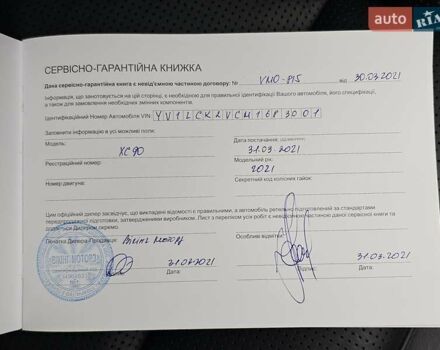 auto RIA
СЕРВІСНО-ГАРАНТІЙНА КНИЖКА
Дана сервісно-гарантійна книга є невід'ємною частиною договору: № VMO-815 від 30.03.2021
Інформація, що занотовується на цій сторінці, є необхідною для правильної ідентифікації Вашого автомобіля, його специфікації,
а також для замовлення необхідних змінних компонентів.
Ідентифікаційний Номер Автомобіля VIN: YV1LCKZVCM1683001
Заповнити інформацію в усі можливі поля:
Модель: Дата постачання
XC90 31.03.2021
Реєстраційний номер: Модельний рік:
2021
Номер двигуна: Секретний код колісних гайок:
Цим офіційний дилер засвідчує, що викладені відомості є правильними, а автомобіль ретельно підготовлений за стандартами
передпродажної підготовки, затвердженими виробником. Лист з переліком усіх робіт є невід'ємною частиною даної сервісної книги та
додається Дилером окремо.
Печатка Дилера Продавця: Вікінг Моторз Особливі відмітки:
ВІКІНГ МОТОРЗ
31.03.2021 31.03.2021
Дата: Підпис: Дата: